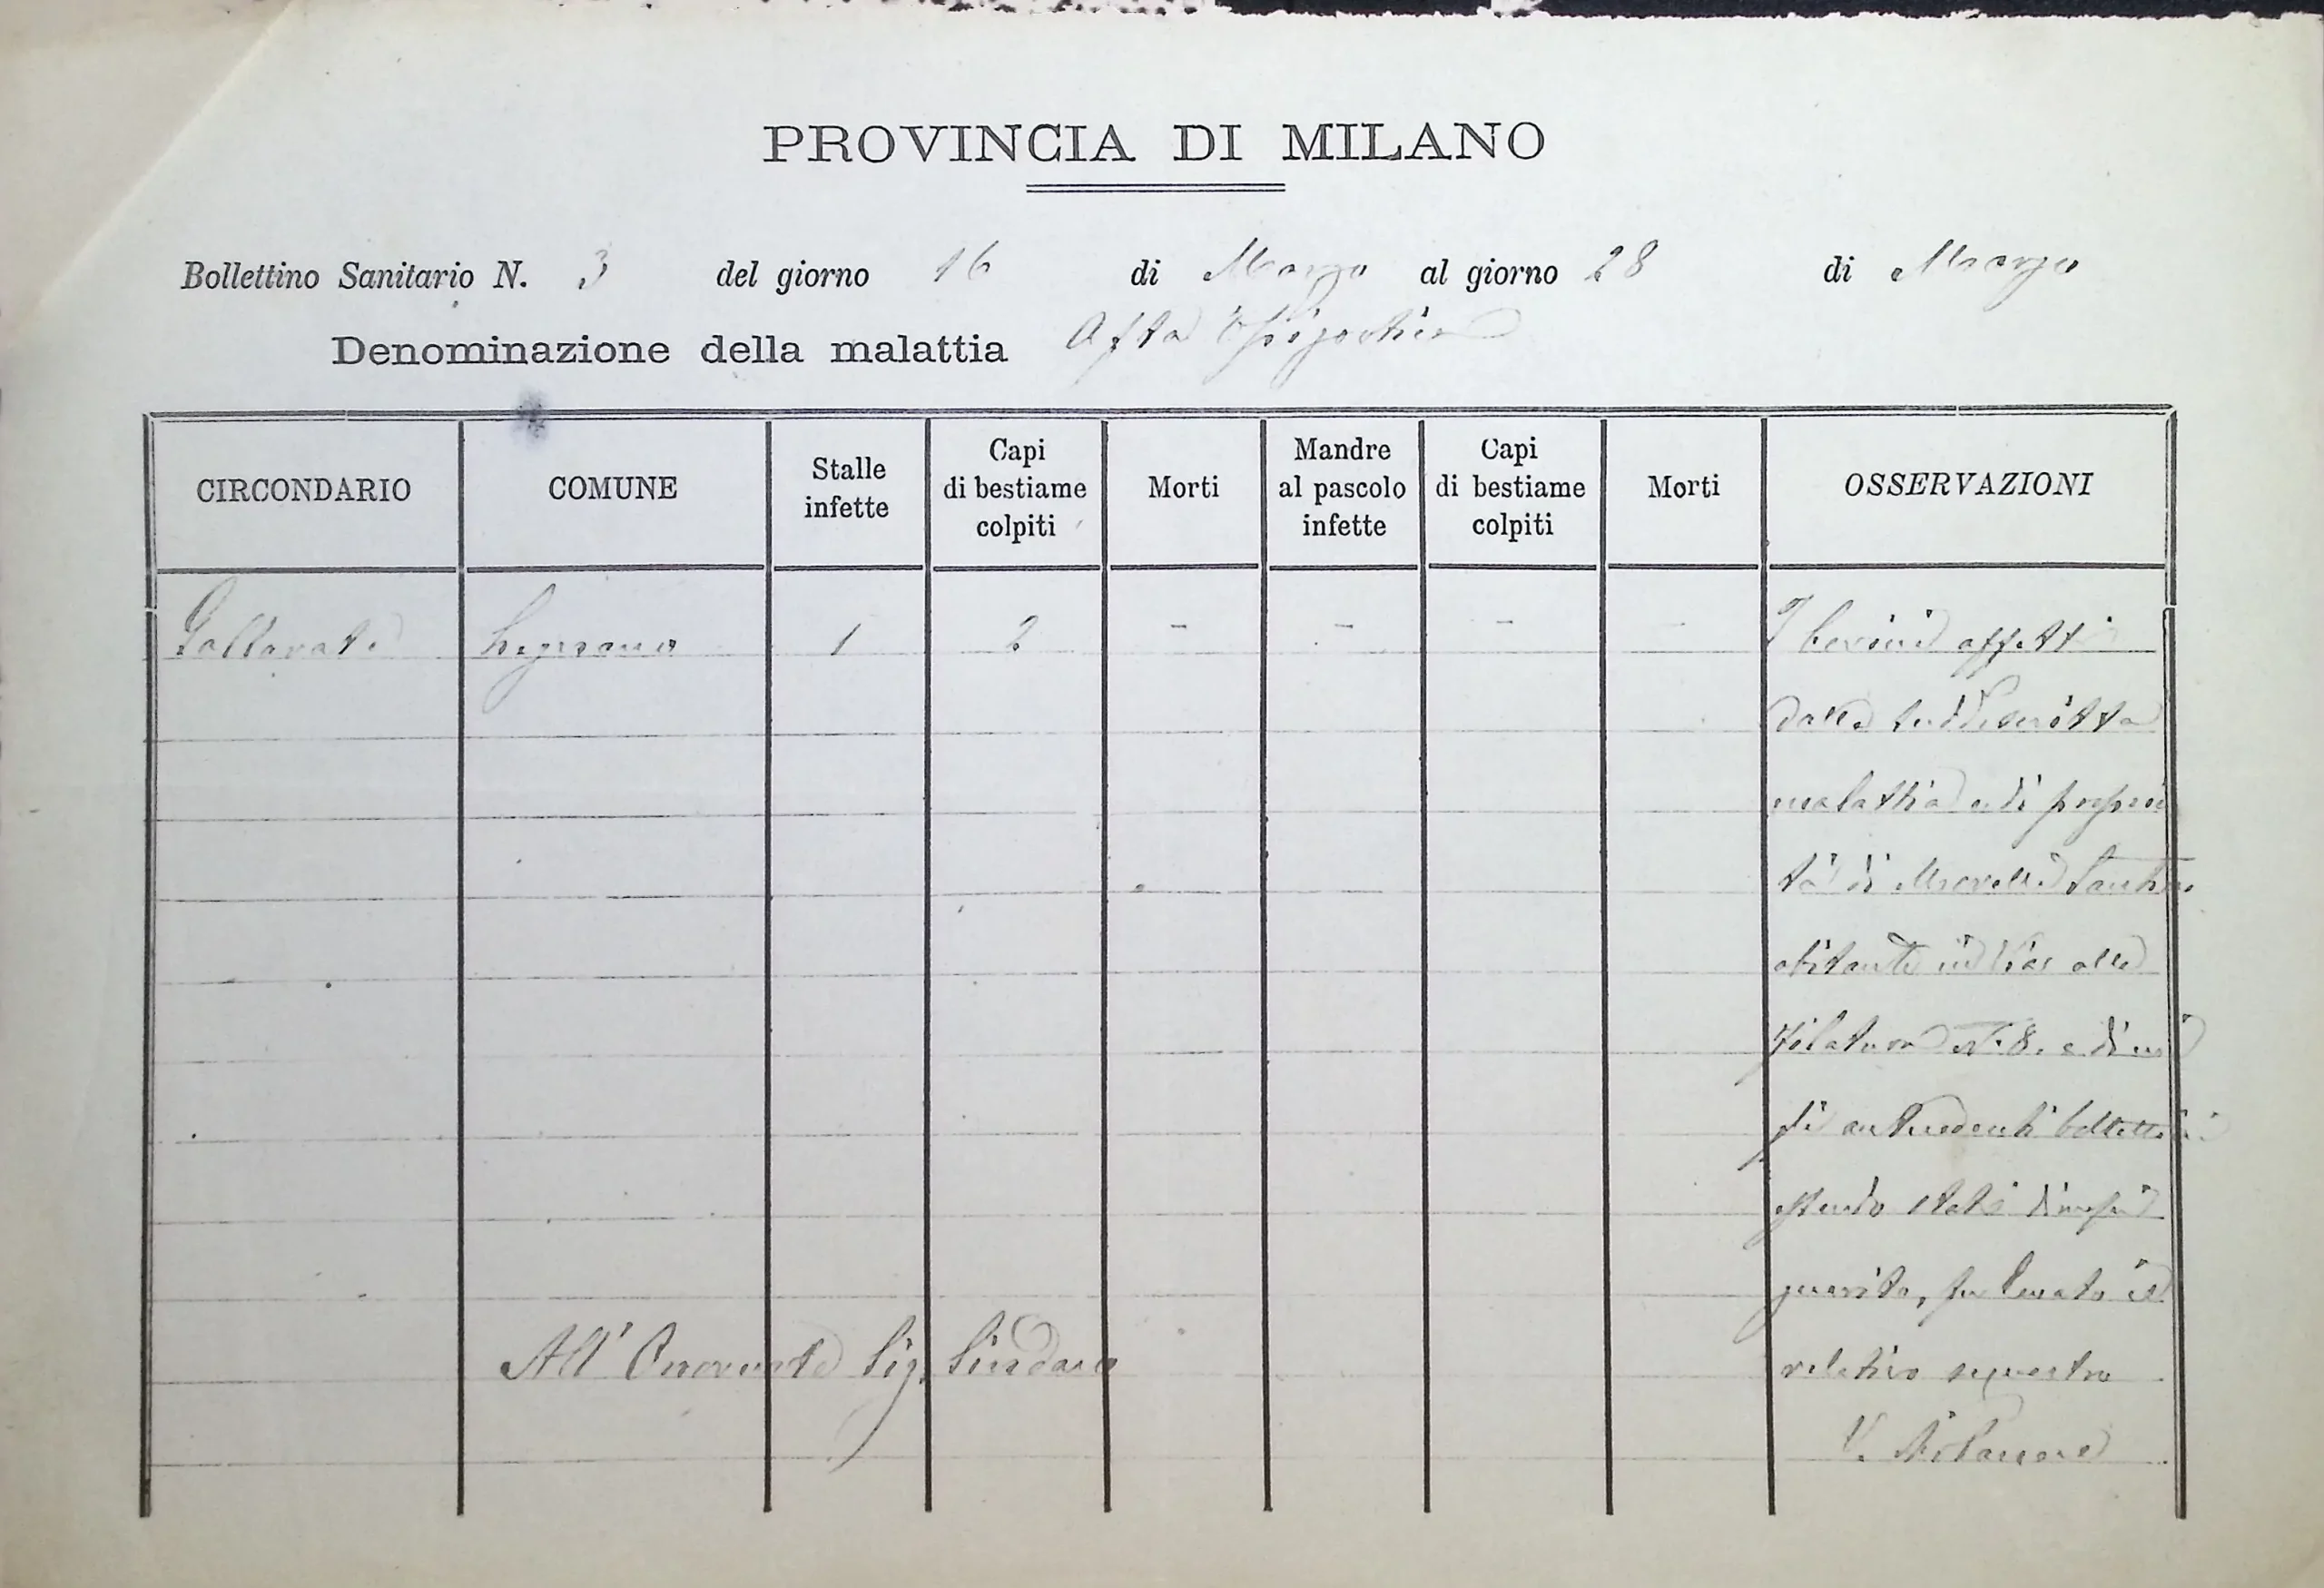 PROVINCIA DI MILANO
Bollettino Sanitario N. 3 del giorno 16 di Marzo al giorno 28 di Marzo
Denominazione della malattia Afta Epizootica
CIRCONDARIO COMUNE Stalle infette Capi di bestiame colpiti Morti Mandre al pascolo infette Capi di bestiame colpiti Morti OSSERVAZIONI
Gallarate Legnano 1 2 - - - I bovini affetti
dalla suddescritta
malattia e di proprie
tà di
abitante in Via alla
Filatura N. 8. e di cui
gli antecedenti bollettini
essendo stati
guariti, fu levato il
relativo sequestro
All' Onorevole Sig. Sindaco
V.